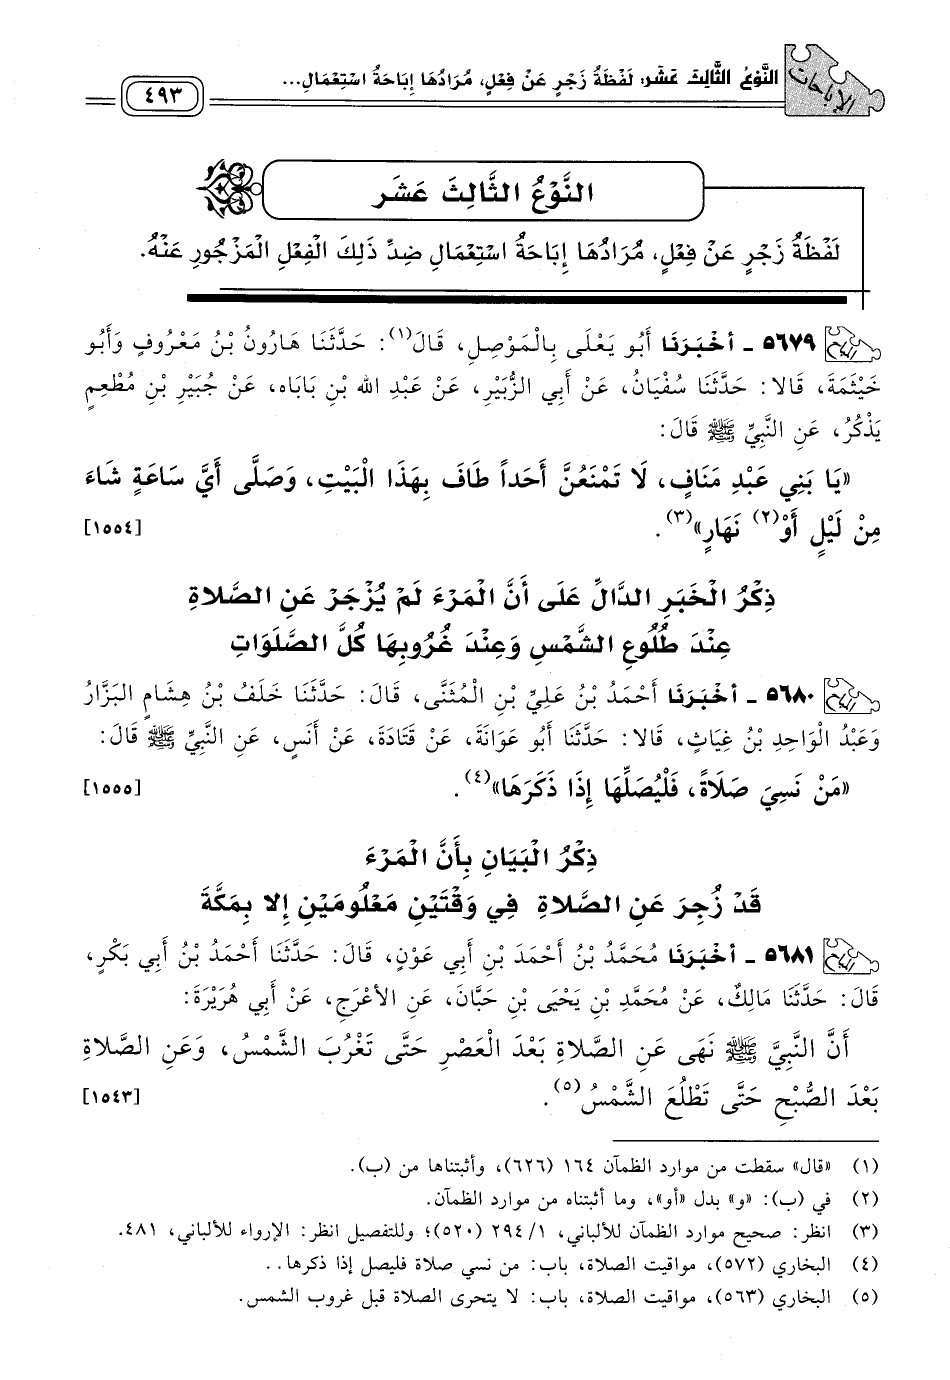 الإباحات
النَّوْعُ الثَّالِثَ عَشَر: لَفْظَةُ زَجْرٍ عَنْ فِعْلٍ، مُرَادُهَا إِبَاحَةُ اسْتِعْمَالِ...
٤٩٣
النَّوْعُ الثَّالِثَ عَشَر
لَفْظَةُ زَجْرٍ عَنْ فِعْلٍ، مُرَادُهَا إِبَاحَةُ اسْتِعْمَالِ ضِدِّ ذَلِكَ الْفِعْلِ الْمَزْجُورِ عَنْهُ.
٥٦٧٩ ـ أخْبَرَنَا أَبُو يَعْلَى بِالْمَوْصِلِ، قَالَ(١): حَدَّثَنَا هَارُونُ بْنُ مَعْرُوفٍ وَأَبُو
خَيْثَمَةَ، قَالا: حَدَّثَنَا سُفْيَانُ، عَنْ أَبِي الزُّبَيْرِ، عَنْ عَبْدِ الله بْنِ بَابَاه، عَنْ جُبَيْرِ بْنِ مُطْعِمٍ
يَذْكُرُ، عَنِ النَّبِيِّ ﷺ قَالَ:
«يَا بَنِي عَبْدِ مَنَافٍ، لَا تَمْنَعُنَّ أَحَداً طَافَ بِهَذَا الْبَيْتِ، وَصَلَّى أَيَّ سَاعَةٍ شَاءَ
مِنْ لَيْلٍ أَوْ(٢) نَهَارٍ»(٣). [١٥٥٤]
ذِكْرُ الْخَبَرِ الدَّالِّ عَلَى أَنَّ الْمَرْءَ لَمْ يُزْجَرْ عَنِ الصَّلاةِ
عِنْدَ طُلُوعِ الشَّمْسِ وَعِنْدَ غُرُوبِهَا كُلَّ الصَّلَوَاتِ
٥٦٨٠ ـ أخْبَرَنَا أَحْمَدُ بْنُ عَلِيِّ بْنِ الْمُثَنَّى، قَالَ: حَدَّثَنَا خَلَفُ بْنُ هِشَامٍ البَزَّارُ
وَعَبْدُ الْوَاحِدِ بْنُ غِيَاثٍ، قَالا: حَدَّثَنَا أَبُو عَوَانَةَ، عَنْ قَتَادَةَ، عَنْ أَنَسٍ، عَنِ النَّبِيِّ ﷺ قَالَ:
«مَنْ نَسِيَ صَلَاةً، فَلْيُصَلِّهَا إِذَا ذَكَرَهَا»(٤). [١٥٥٥]
ذِكْرُ الْبَيَانِ بِأَنَّ الْمَرْءَ
قَدْ زُجِرَ عَنِ الصَّلاةِ فِي وَقْتَيْنِ مَعْلُومَيْنِ إِلا بِمَكَّةَ
٥٦٨١ ـ أخْبَرَنَا مُحَمَّدُ بْنُ أَحْمَدَ بْنِ أَبِي عَوْنٍ، قَالَ: حَدَّثَنَا أَحْمَدُ بْنُ أَبِي بَكْرٍ،
قَالَ: حَدَّثَنَا مَالِكٌ، عَنْ مُحَمَّدِ بْنِ يَحْيَى بْنِ حَبَّانَ، عَنِ الأعْرَجِ، عَنْ أَبِي هُرَيْرَةَ:
أَنَّ النَّبِيَّ ﷺ نَهَى عَنِ الصَّلاةِ بَعْدَ الْعَصْرِ حَتَّى تَغْرُبَ الشَّمْسُ، وَعَنِ الصَّلاةِ
بَعْدَ الصُّبْحِ حَتَّى تَطْلُعَ الشَّمْسُ(٥). [١٥٤٣]
(١) «قال» سقطت من موارد الظمآن ١٦٤ (٦٢٦)، وأثبتناها من (ب).
(٢) في (ب): «و» بدل «أو»، وما أثبتناه من موارد الظمآن.
(٣) انظر: صحيح موارد الظمآن للألباني، ١/ ٢٩٤ (٥٢٠)؛ وللتفصيل انظر: الإرواء للألباني، ٤٨١.
(٤) البخاري (٥٧٢)، مواقيت الصلاة، باب: من نسي صلاة فليصل إذا ذكرها..
(٥) البخاري (٥٦٣)، مواقيت الصلاة، باب: لا يتحرى الصلاة قبل غروب الشمس.